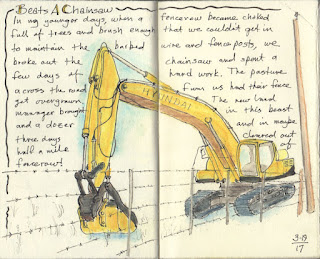 Beats A Chainsaw
In my younger days, when a fencerow became choked
full of trees and brush enough that we couldn't get in
to maintain the barbed wire and fenceposts, we
broke out the chainsaw and spent a
few days of hard work. The pasture
across the road from us had their fence
get overgrown The new land
manager brought in this beast
and a dozer and in maybe
three days cleaned out
half a mile of
fencerow!
HYUNDAI
3-19
17